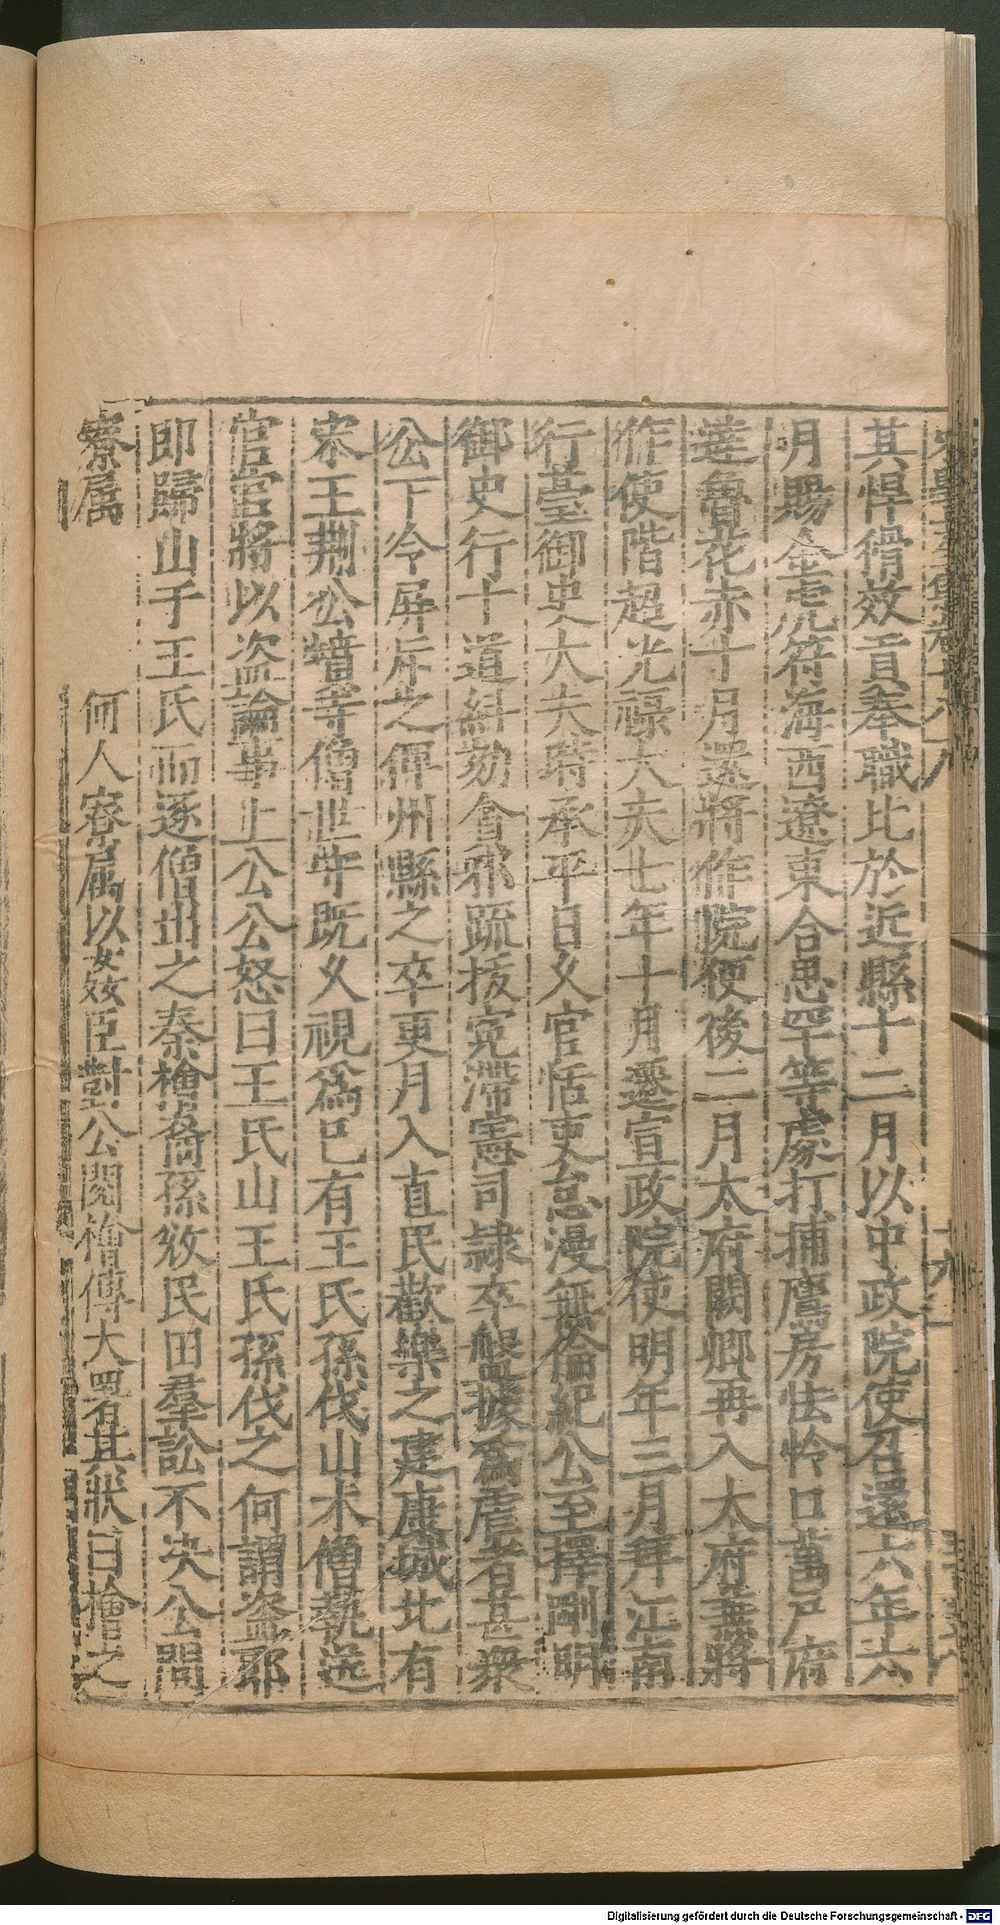 其悍猾效貢奉職比於近縣十二月以中政院使召還六年六
月賜金虎符海西遼東合思罕等處打捕鷹房怯怜口萬戶府
達魯花赤十月還將作院使後二月太府闕卿再入太府兼將
作使階超光祿大夫七年十月遷宣政院使明年三月拜江南
行臺御史大夫時承平日久官恬吏怠漫無倫紀公至擇剛明
御史行十道糾劾僉邪疏拔冤滯憲司隷卒盤據爲虐者甚衆
公下令屏斥之俾州縣之卒更月入直民歡樂之建康城北有
宋王荆公墳寺僧世守既久視爲己有王氏孫伐山木僧執送
官官將以盜論事上公公怒曰王氏山王氏孫伐之何謂盜耶
即歸山于王氏而逐僧出之秦檜裔孫攽民田羣訟不決公問
寮属 何人寮属以姦臣對公閱檜傳大署其狀曰檜之
Digitalisierung gefördert durch die Deutsche Forschungsgemeinschaft - DFG